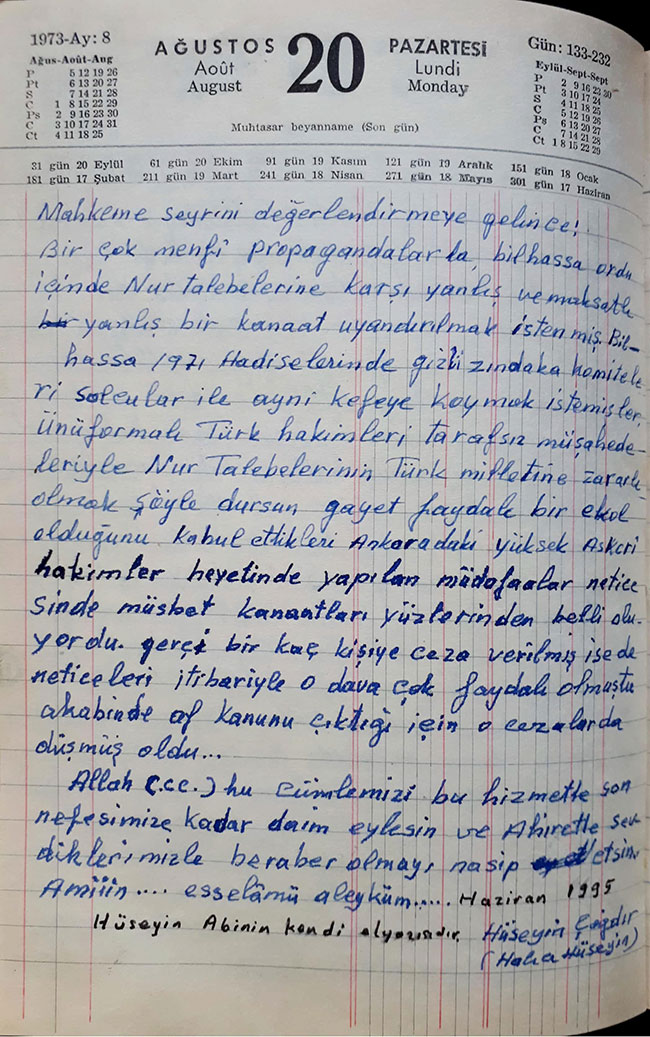 1973-Ay: 8
Ağus-Août-Aug
P 5 12 19 26
Pt 6 13 20 27
S 7 14 21 28
Ç 1 8 15 22 29
Ps 2 9 16 23 30
C 3 10 17 24 31
Ct 4 11 18 25
AĞUSTOS
Août
August
20
PAZARTESİ
Lundi
Monday
Muhtasar beyanname (Son gün)
Gün: 133-232
Eylül-Sept-Sept
P 2 9 16 23 30
Pt 3 10 17 24
S 4 11 18 25
Ç 5 12 19 26
Ps 6 13 20 27
C 7 14 21 28
Ct 1 8 15 22 29
31 gün 20 Eylül 61 gün 20 Ekim 91 gün 19 Kasım 121 gün 19 Aralık 151 gün 18 Ocak
181 gün 17 Şubat 211 gün 19 Mart 241 gün 18 Nisan 271 gün 18 Mayıs 301 gün 17 Haziran
Mahkeme seyrini değerlendirmeye gelince!
Bir çok menfi propagandalarla, bilhassa ordu
içinde Nur talebelerine karşı yanlış ve maksatlı
bir yanlış bir kanaat uyandırılmak istenmiş. Bil-
hassa 1971 Hadiselerinde gizli zındaka komitele
ri solcular ile ayni kefeye koymak istemişler.
Ünüformalı Türk hakimleri tarafsız müşahede-
leriyle Nur Talebelerinin Türk milletine zararlı
olmak şöyle dursun gayet faydalı bir ekol
olduğunu kabul ettikleri Ankaradaki yüksek Askeri
hakimler heyetinde yapılan müdafaalar netice
sinde müsbet kanaatları yüzlerinden belli olu-
yordu. gerçi bir kaç kişiye ceza verilmiş isede
neticeleri itibariyle o dava çok faydalı olmuştu
akabinde af kanunu çıktığı için o cezalarda
düşmüş oldu...
Allah (cc.) hu cümlemizi bu hizmette son
nefesimize kadar daim eylesin ve Ahirette sev
diklerimizle beraber olmayı nasip etsin.
Amiiin .... esselâmü aleyküm..... Haziran 1995
Hüseyin Abinin kendi elyazısıdır. Hüseyin Çağdır
(Hoca Hüseyin)